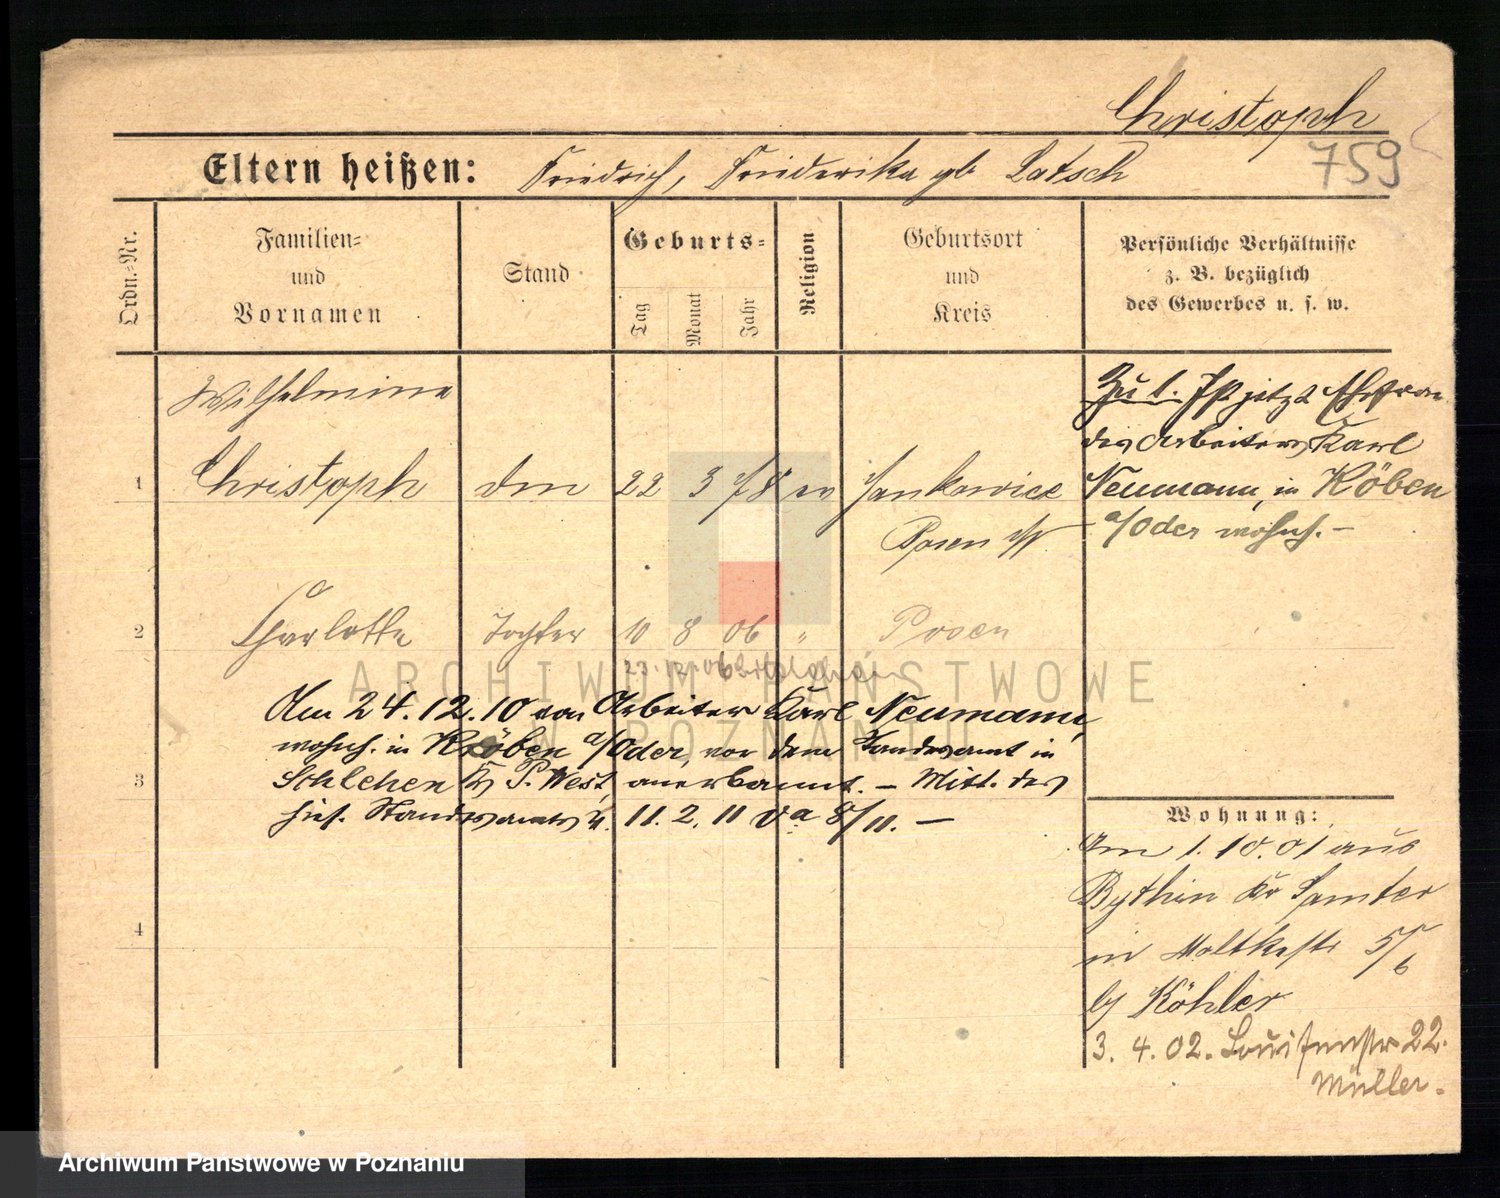 Christoph
759
Eltern heißen: Friedrich, Friderika gb Latsch
Ordn.=Nr.
Familien=
und
Vornamen
Stand
Geburts=
Tag
Monat
Jahr
Religion
Geburtsort
und
Kreis
Persönliche Verhältnisse
z. B. bezüglich
des Gewerbes u. s. w.
Wilhelmine
1 Christoph 22 3 78 ev Jankowice
Posen W
Zu 1. Ist jetzt Ehefrau
des Arbeiters Karl
Neumann, in Köben
a/Oder wohnh. –
2 Charlotte Tochter 10 8 06 " Posen
23. 12. 06
Am 24.12.10 von Arbeiter Karl Neumann,
wohnh. in Köben a/Oder, vor dem Standesamt in
3 Kr P. West, anerkannt. – Mitt. des
hies. Standesamts v. 11. 2. 11 8/11. –
4
Wohnung:
Am 1. 10. 01 aus
Bythin Kr Samter
in Moltkestr 5/6
by Köhler
3. 4. 02. Louisenstr 22.
Müller.
ARCHIWUM PAŃSTWOWE
W POZNANIU
Archiwum Państwowe w Poznaniu